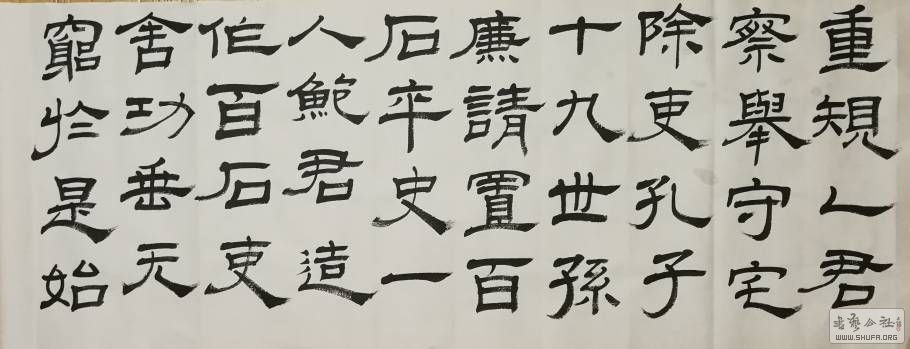 重䂓乙君
察舉守宅
除吏孔子
十九世孫
廉請置百
石卒史一
人鮑君造
作百石吏
舍功垂无
窮於是始
书艺公社
WWW.SHUFA.ORG